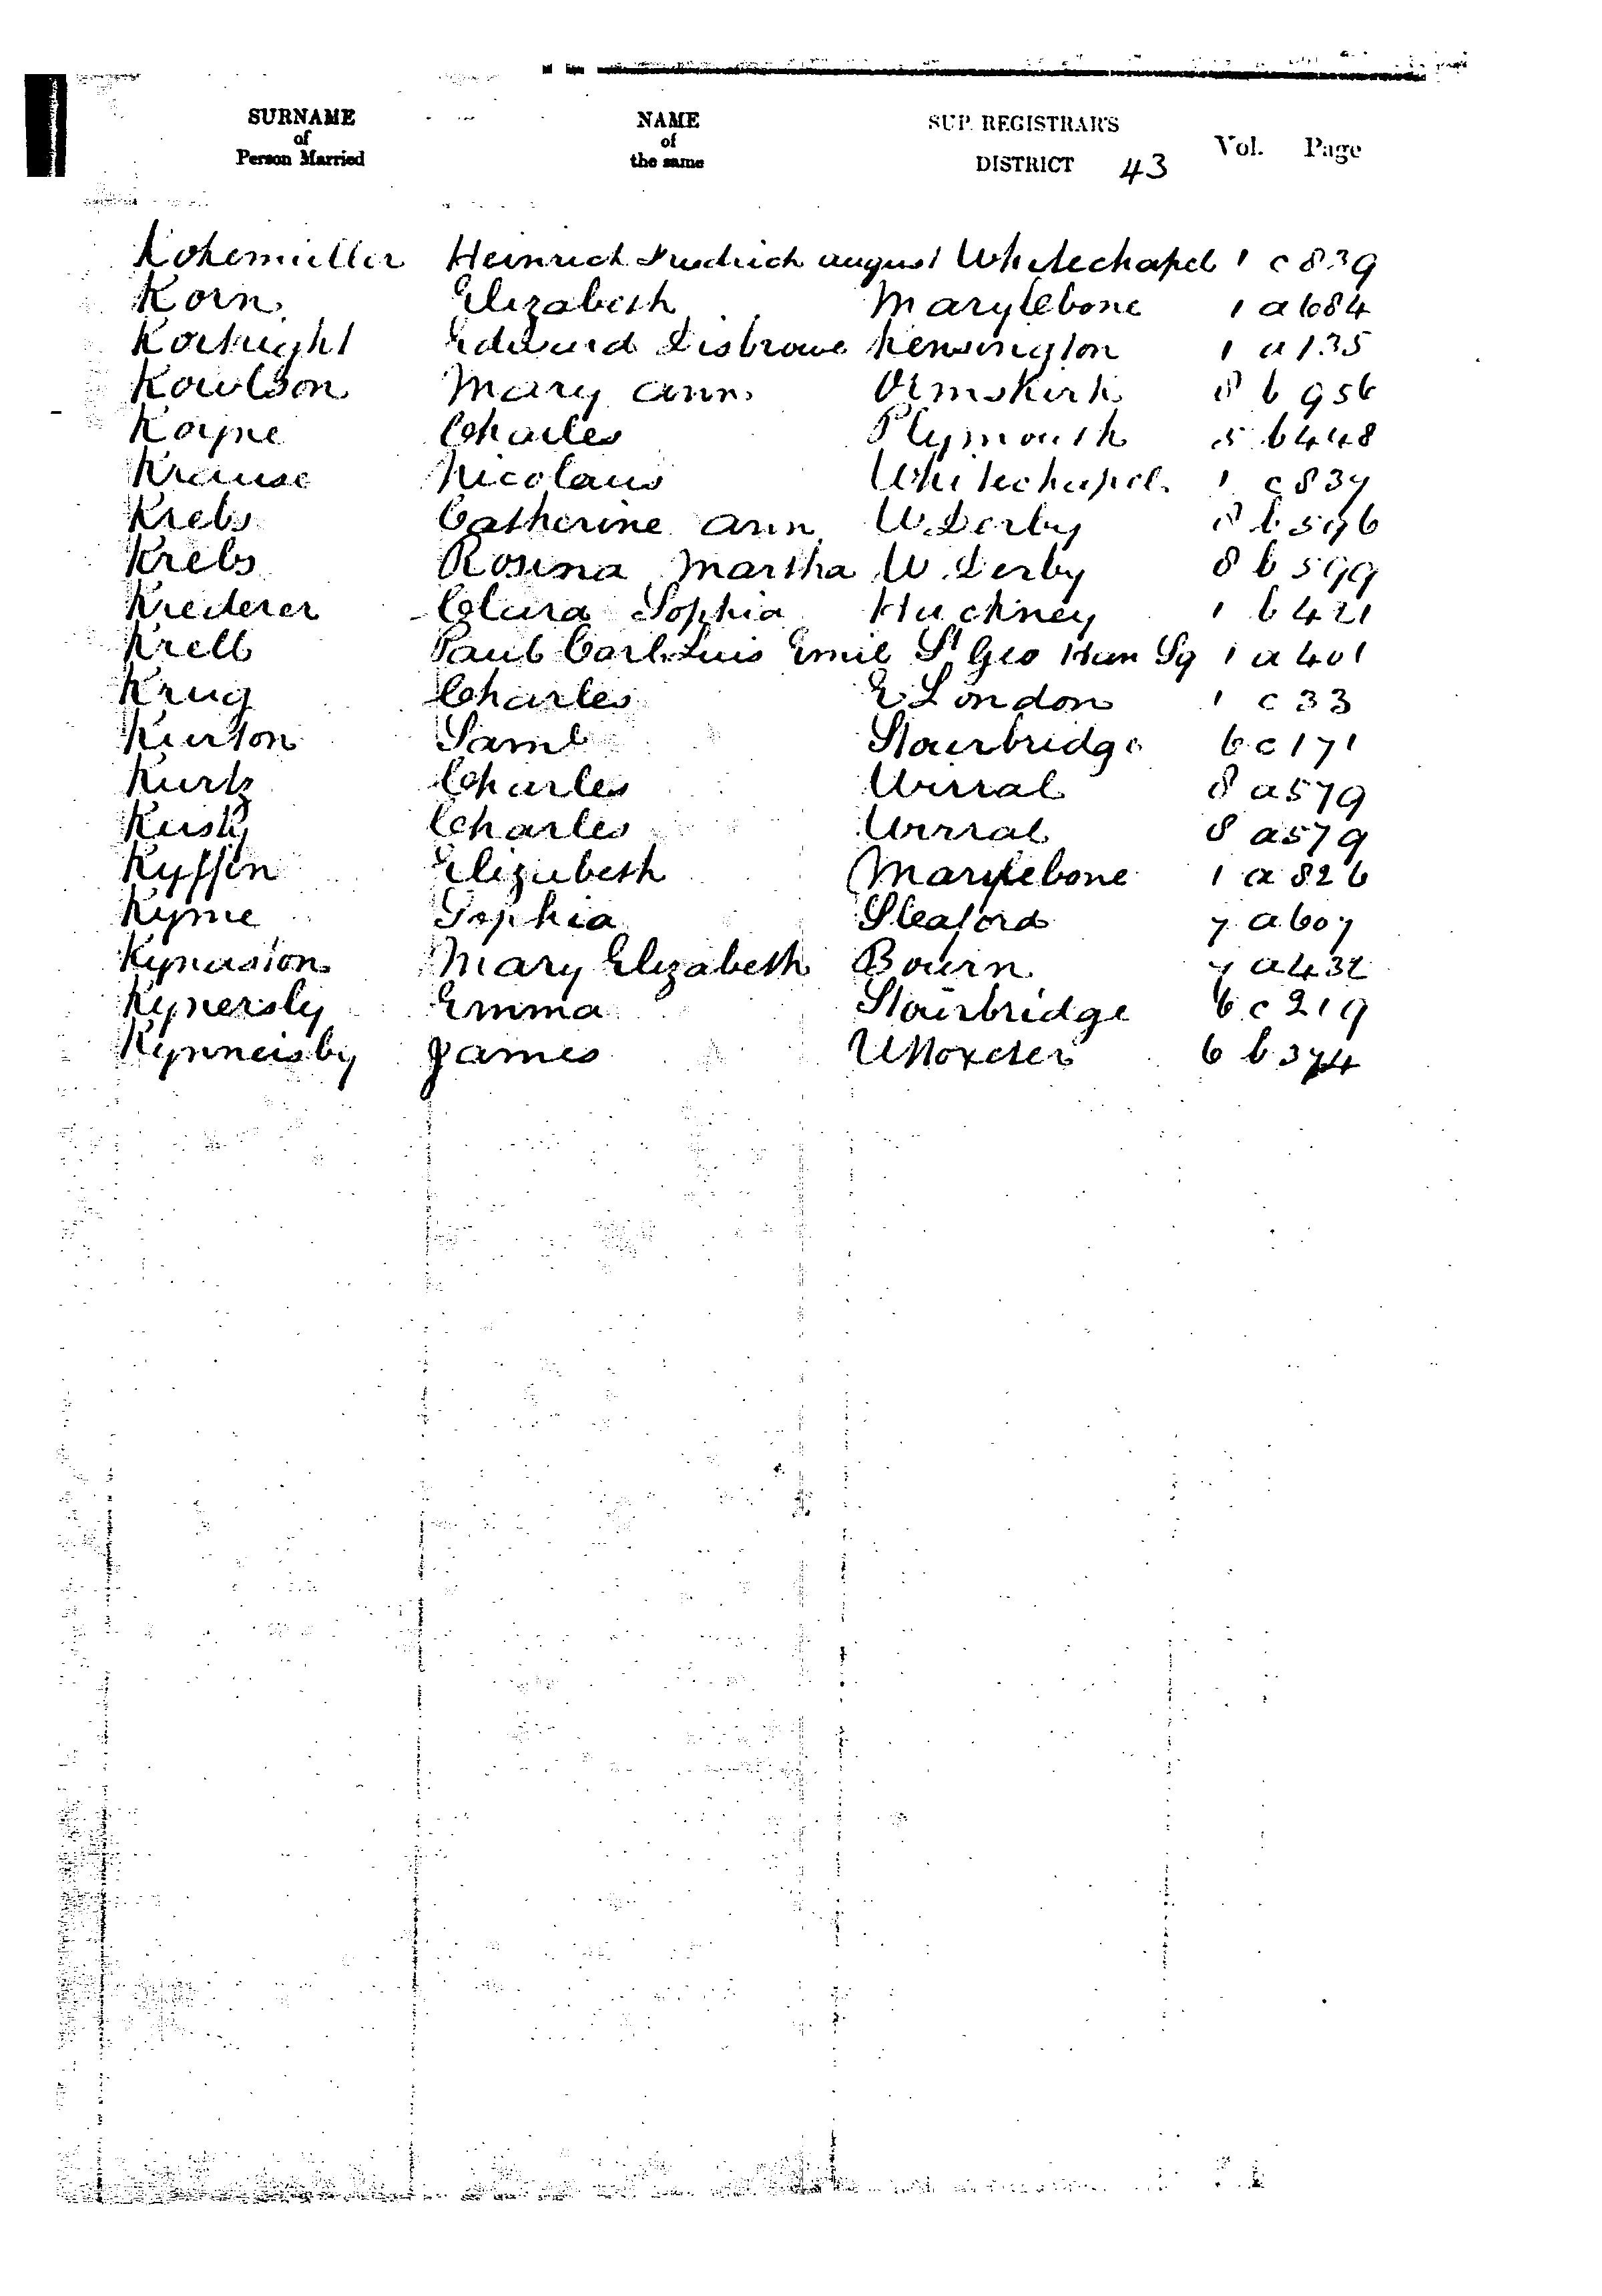 SURNAME of Person Married NAME of the same SUP. REGISTRAR'S DISTRICT 43 Vol. Page
Kokemuller Heinrich Friedrich August Whitechapel 1 c 839
Korn Elizabeth Marylebone 1 a 684
Kortright Edward Disbrowe Kensington 1 a 135
Kowlson Mary Ann Ormskirk 8 b 956
Koyne Charles Plymouth 5 b 448
Krause Nicolaus Whitechapel 1 c 837
Krebs Catherine Ann W. Derby 8 b 596
Krebs Rosina Martha W. Derby 8 b 599
Krederer Clara Sophia Hackney 1 b 421
Krell Paul Carl Luis Emil St Geo Han Sq 1 a 401
Krug Charles E London 1 c 33
Kurton Saml Stourbridge 6 c 171
Kurtz Charles Wirral 8 a 579
Charles Wirral 8 a 579
Kyffin Elizabeth Marylebone 1 a 826
Kyme Sophia Sleaford 7 a 607
Kynaston Mary Elizabeth Bourn 7 a 432
Kynersly Emma Stourbridge 6 c 219
Kynnersby James Uttoxeter 6 b 374